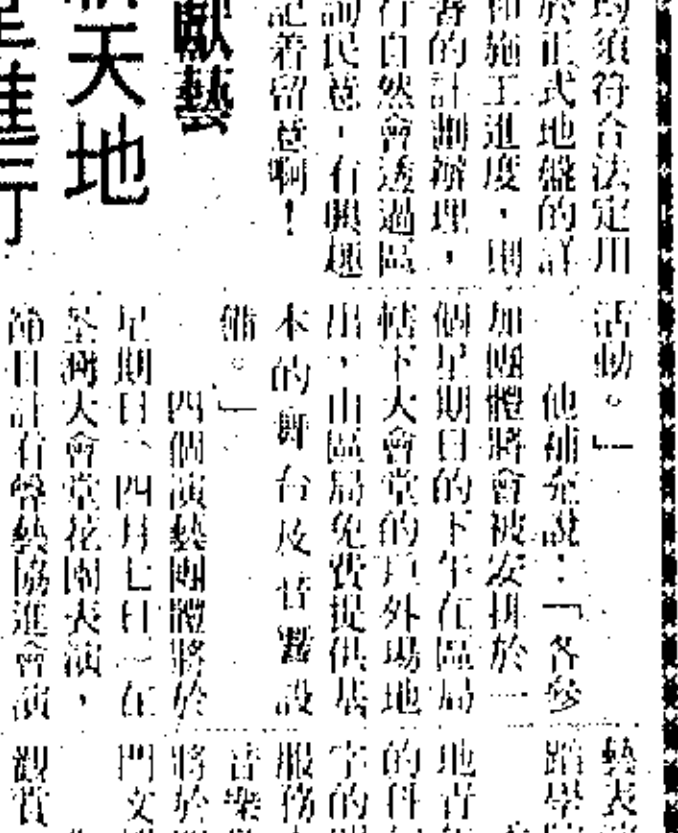 均須符合法定用
於正式地盤的詳
和施工進度,則
署的計劃辦理,
行自然會透過區
詢民意,有興趣
記着留意啊!
獻藝
天地
進行
活動。」
他補充說:「各參
加團體將會被安排於一
個星期日的下午在區局
轄下大會堂的戶外場地
出,由區局免費提供基
本的舞台及音響設
備。」
四個演藝團體將於
星期日(四月七日)在
荃灣大會堂花園表演,
節目計有聲藝協進會演
藝表
踏學
地青
的件
字的
服務
音樂
將於
門文
觀賞